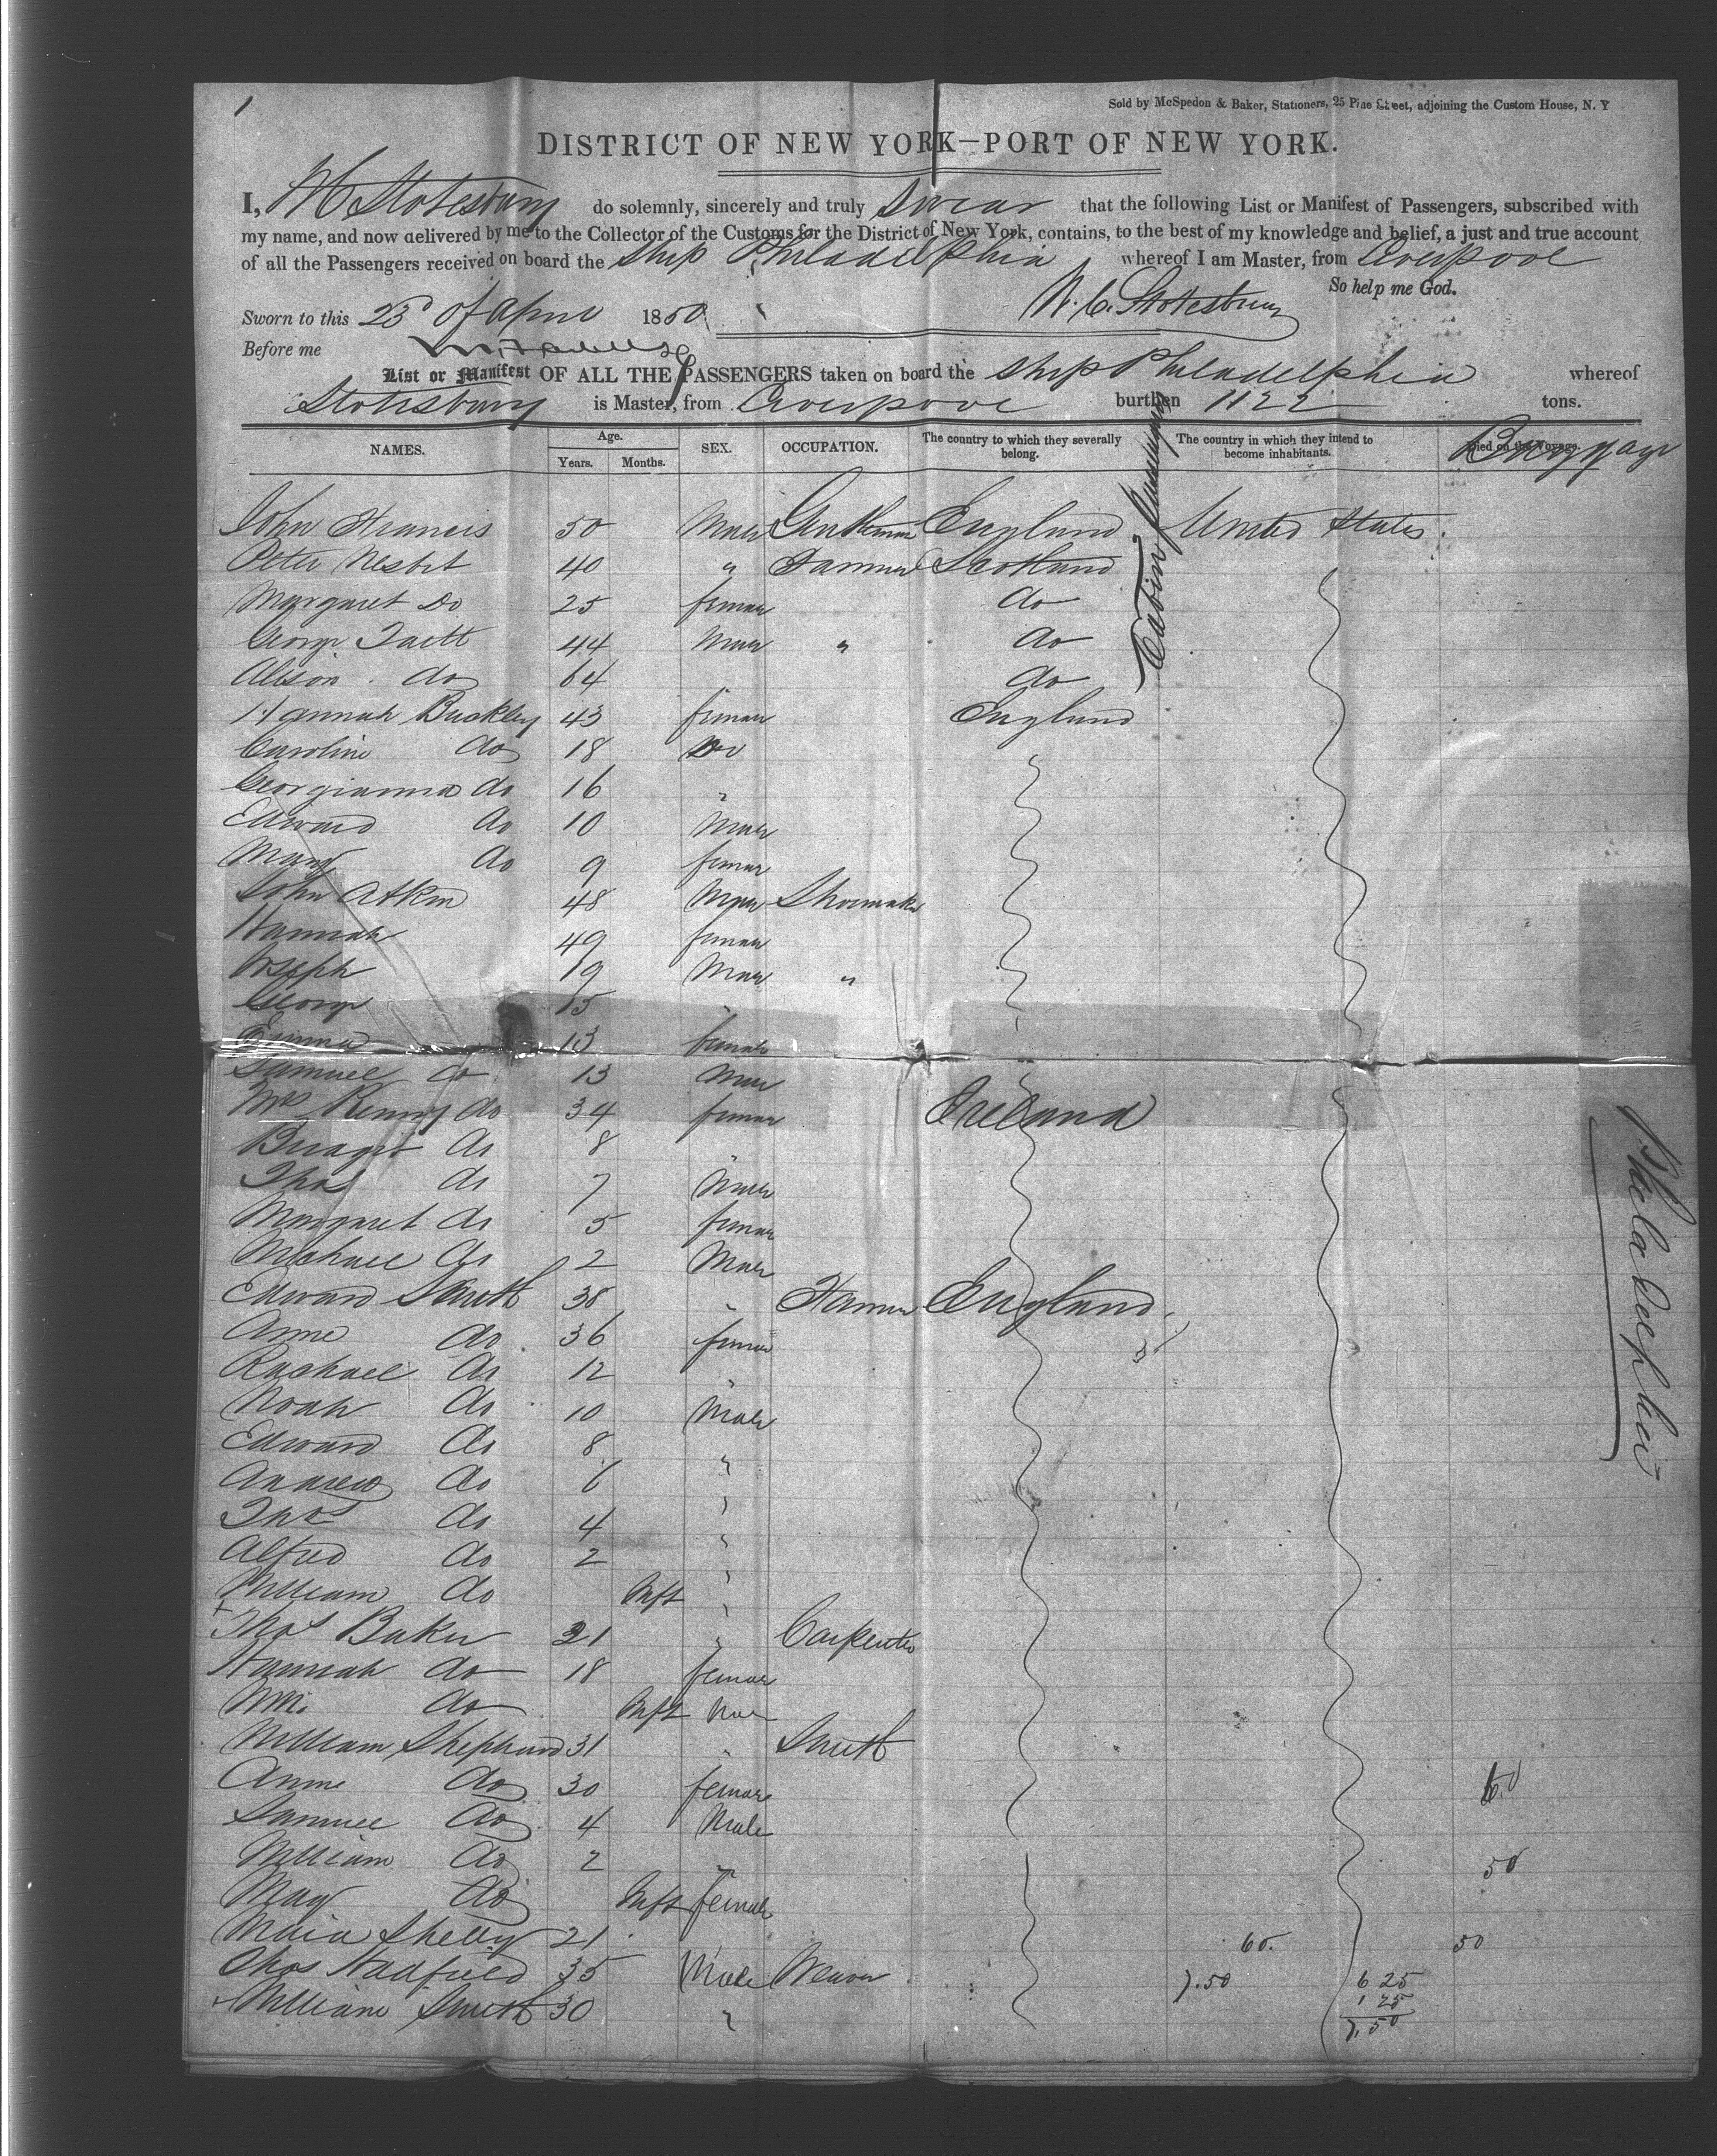 1
Sold by McSpedon & Baker, Stationers, 25 Pine Street, adjoining the Custom House, N. Y
DISTRICT OF NEW YORK—PORT OF NEW YORK.
I, W C Stotesbury do solemnly, sincerely and truly swear that the following List or Manifest of Passengers, subscribed with
my name, and now delivered by me to the Collector of the Customs for the District of New York, contains, to the best of my knowledge and belief, a just and true account
of all the Passengers received on board the Ship Philadelphia whereof I am Master, from Liverpool
So help me God.
Sworn to this 23d of April 1850. W. C. Stotesbury
Before me
List or Manifest OF ALL THE PASSENGERS taken on board the Ship Philadelphia whereof
Stotesbury is Master, from Liverpool burthen 1122 tons.
NAMES. Age. Years. Months. SEX. OCCUPATION. The country to which they severally belong. The country in which they intend to become inhabitants. Died on the Voyage. Baggage
Cabin Passengers
John Francis 50 Male Gentleman England United States.
Peter Nesbit 40 " Farmer Scotland
Margaret Do 25 female do
George Taitt 44 Male " do
Alison do 64 do
Hannah Buckley 43 female England
Caroline do 18 Do
Georgianna do 16 "
Edward do 10 Male
Mary do 9 female
John Atkin 48 Male Shoemaker
Hannah 49 female
Joseph 19 Male "
George 15 "
Emma 13 female
Samuel do 13 Male
Mrs Kenny do 34 female Ireland
Bridget do 8 "
Thos do 7 Male
Margaret do 5 female
Michael do 2 Male
Edward Smith 38 " Farmer England
Anne do 36 female
Rachael do 12 "
Noah do 10 Male
Edward do 8 "
Andrew do 6 "
Thos do 4 "
Alfred do 2 "
William do Inft "
Thos Baker 21 " Carpenter
Hannah do 18 female
Wm. do Inft Male
William Shepherd 31 " Smith
Anne do 30 female
Samuel do 4 Male
William do 2 " 50
Mary do Inft female
Maria Shelly 21 60. 50
Thos Hadfield 35 Male Weaver 7.50 6 25
William Smith 30 " 1 25
7.50
Philadelphia